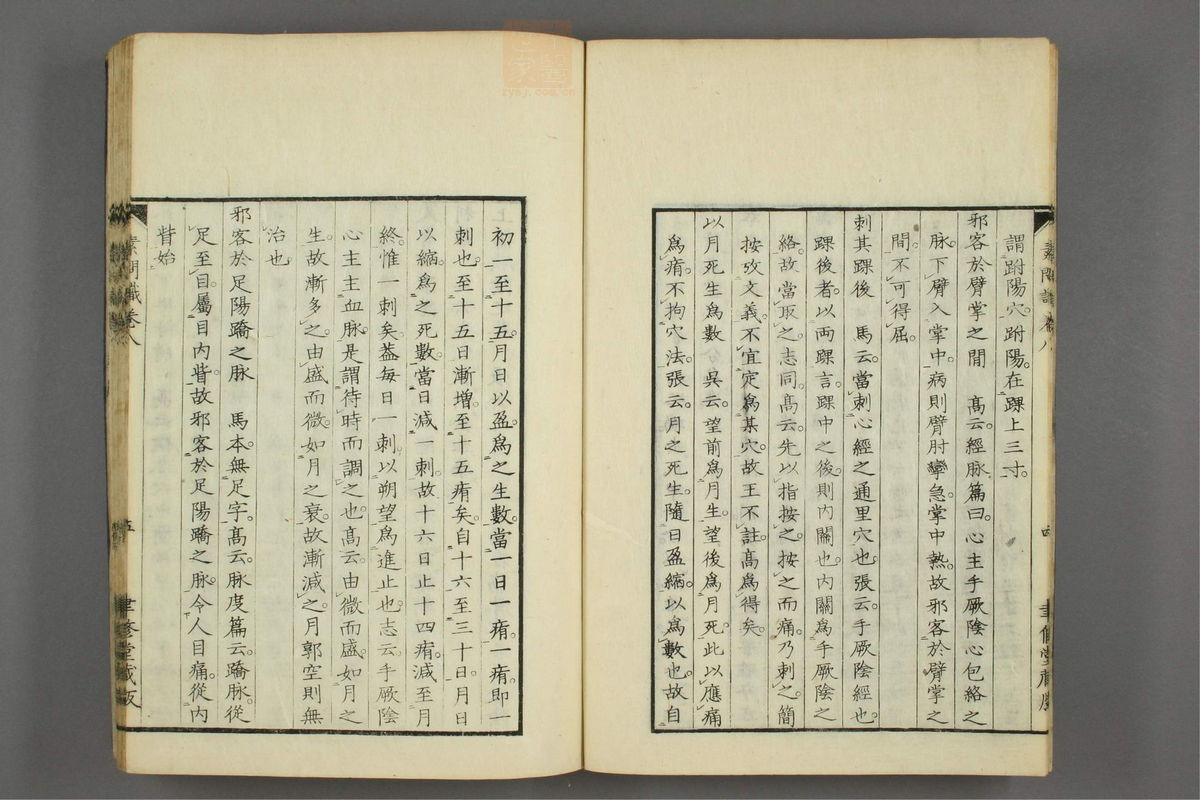 謂跗陽穴跗陽在踝上三寸
邪客於臂掌之間　高云經脉篇曰心主手厥陰心包絡之
脉下臂入掌中病則臂肘攣急掌中熱故邪客於臂掌之
間不可得屈
刺其踝後　馬云當刺心經之通里穴也張云手厥陰經也
踝後者以兩踝言踝中之後則內關也內關爲手厥陰之
絡故當取之志同高云先以指按之按之而痛乃刺之簡
按攷文義不宜定爲某穴故王不註高爲得矣
以月死生爲數　吳云望前爲月生望後爲月死此以應痛
爲痏不拘穴法張云月之死生隨日盈縮以爲數也故自
初一至十五月日以盈爲之生數當一日一痏一痏即一
刺也至十五日漸增至十五痏矣自十六至三十日月日
以縮爲之死數當日減一刺故十六日止十四痏減至月
終惟一刺矣葢每日一刺以朔望爲進止也志云手厥陰
心主主血脉是謂待時而調之也高云由微而盛如月之
生故漸多之由盛而微如月之衰故漸減之月郭空則無
治也
邪客於足陽蹻之脉　馬本無足字高云脉度篇云蹻脉從
足至目屬目內眥故邪客於足陽蹻之脉令人目痛從內
眥始
素問識卷八
五
聿修堂藏版